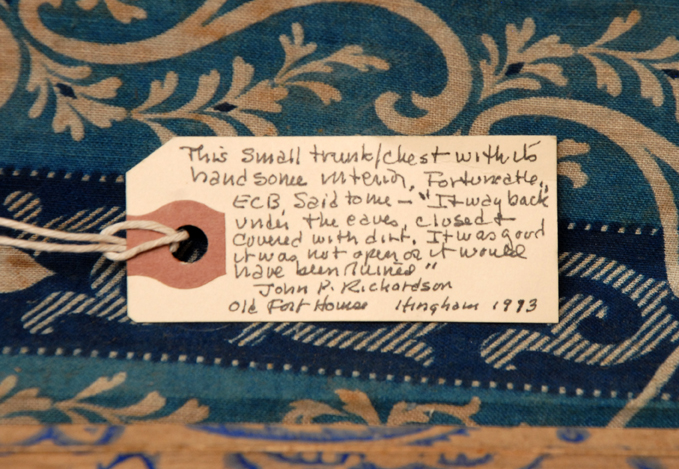 This small trunk/chest with its
handsome interior, Fortunately,
ECB, said to me – "It way back
under the eaves, closed &
covered with dirt. It was good
it was not open or it would
have been ruined"
John P. Richardson
Old Fort House Hingham 1993